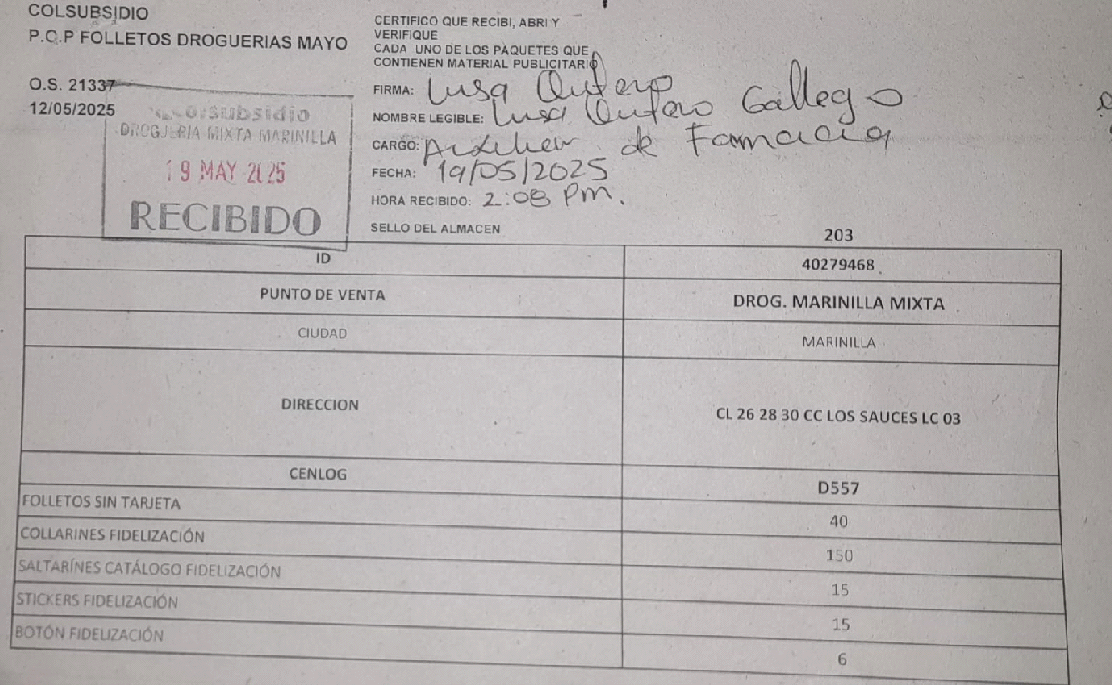 COLSUBSIDIO
P.O.P FOLLETOS DROGUERIAS MAYO
O.S. 21337
12/05/2025
Colsubsidio
DROGUERIA MIXTA MARINILLA
19 MAY 2025
RECIBIDO
CERTIFICO QUE RECIBI, ABRI Y
VERIFIQUE
CADA UNO DE LOS PAQUETES QUE
CONTIENEN MATERIAL PUBLICITARIO
FIRMA: Lusa Quntero
NOMBRE LEGIBLE: Lusa Quntero Gallego
CARGO: Auxiliar de Farmacia
FECHA: 19/05/2025
HORA RECIBIDO: 2:08 Pm.
SELLO DEL ALMACEN
203
ID 40279468
PUNTO DE VENTA DROG. MARINILLA MIXTA
CIUDAD MARINILLA
DIRECCION CL 26 28 30 CC LOS SAUCES LC 03
CENLOG D557
FOLLETOS SIN TARJETA 40
COLLARINES FIDELIZACIÓN 150
SALTARÍNES CATÁLOGO FIDELIZACIÓN 15
STICKERS FIDELIZACIÓN 15
BOTÓN FIDELIZACIÓN 6